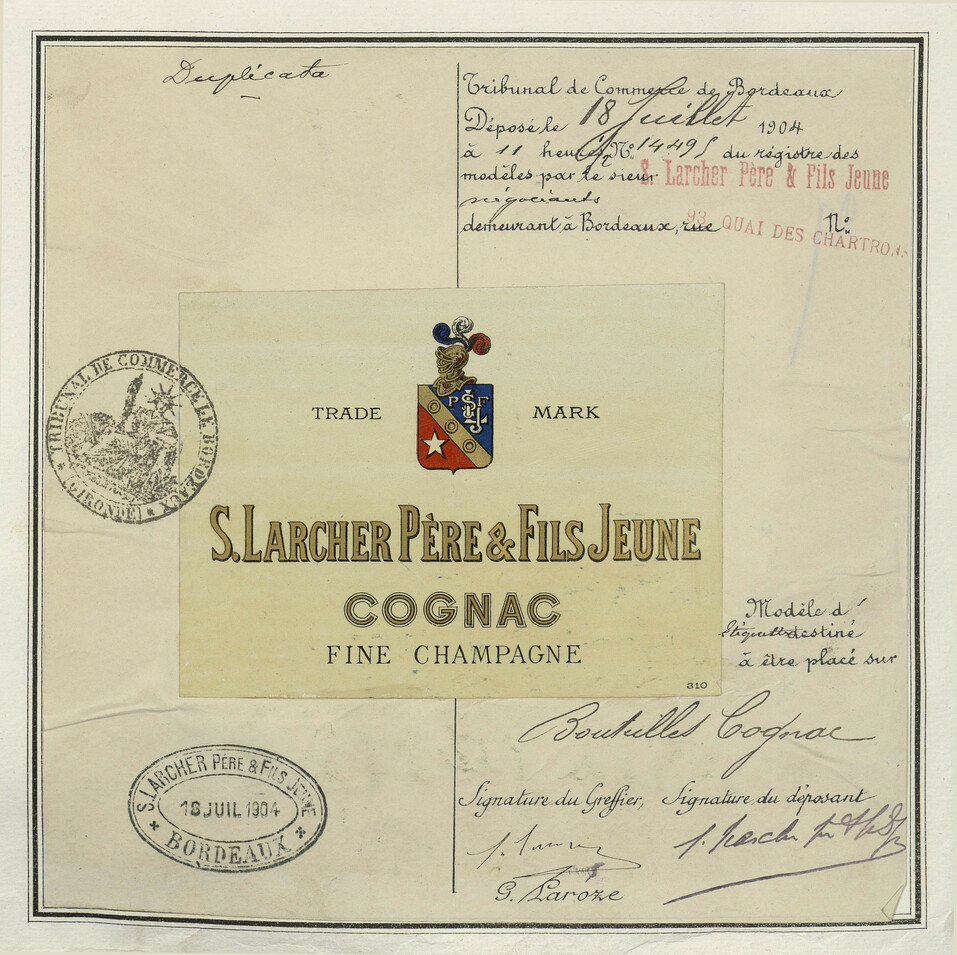 Duplicata
Tribunal de Commerce de Bordeaux
Déposé le 18 Juillet 1904
à 11 heures Nº 14495 du régistre des
modèles par le sieur S. Larcher Père & Fils Jeune
négociants
demeurant à Bordeaux, rue Nº
93, QUAI DES CHARTRONS
TRIBUNAL DE COMMERCE DE BORDEAUX
(GIRONDE)
TRADE MARK
P S F
L J
S. LARCHER PÈRE & FILS JEUNE
COGNAC
FINE CHAMPAGNE
310
Modèle d'
Etiquette destiné
à être placé sur
Bouteilles Cognac
S. LARCHER PÈRE & FILS JEUNE
18 JUIL 1904
BORDEAUX
Signature du Greffier, Signature du déposant
G. Laroze